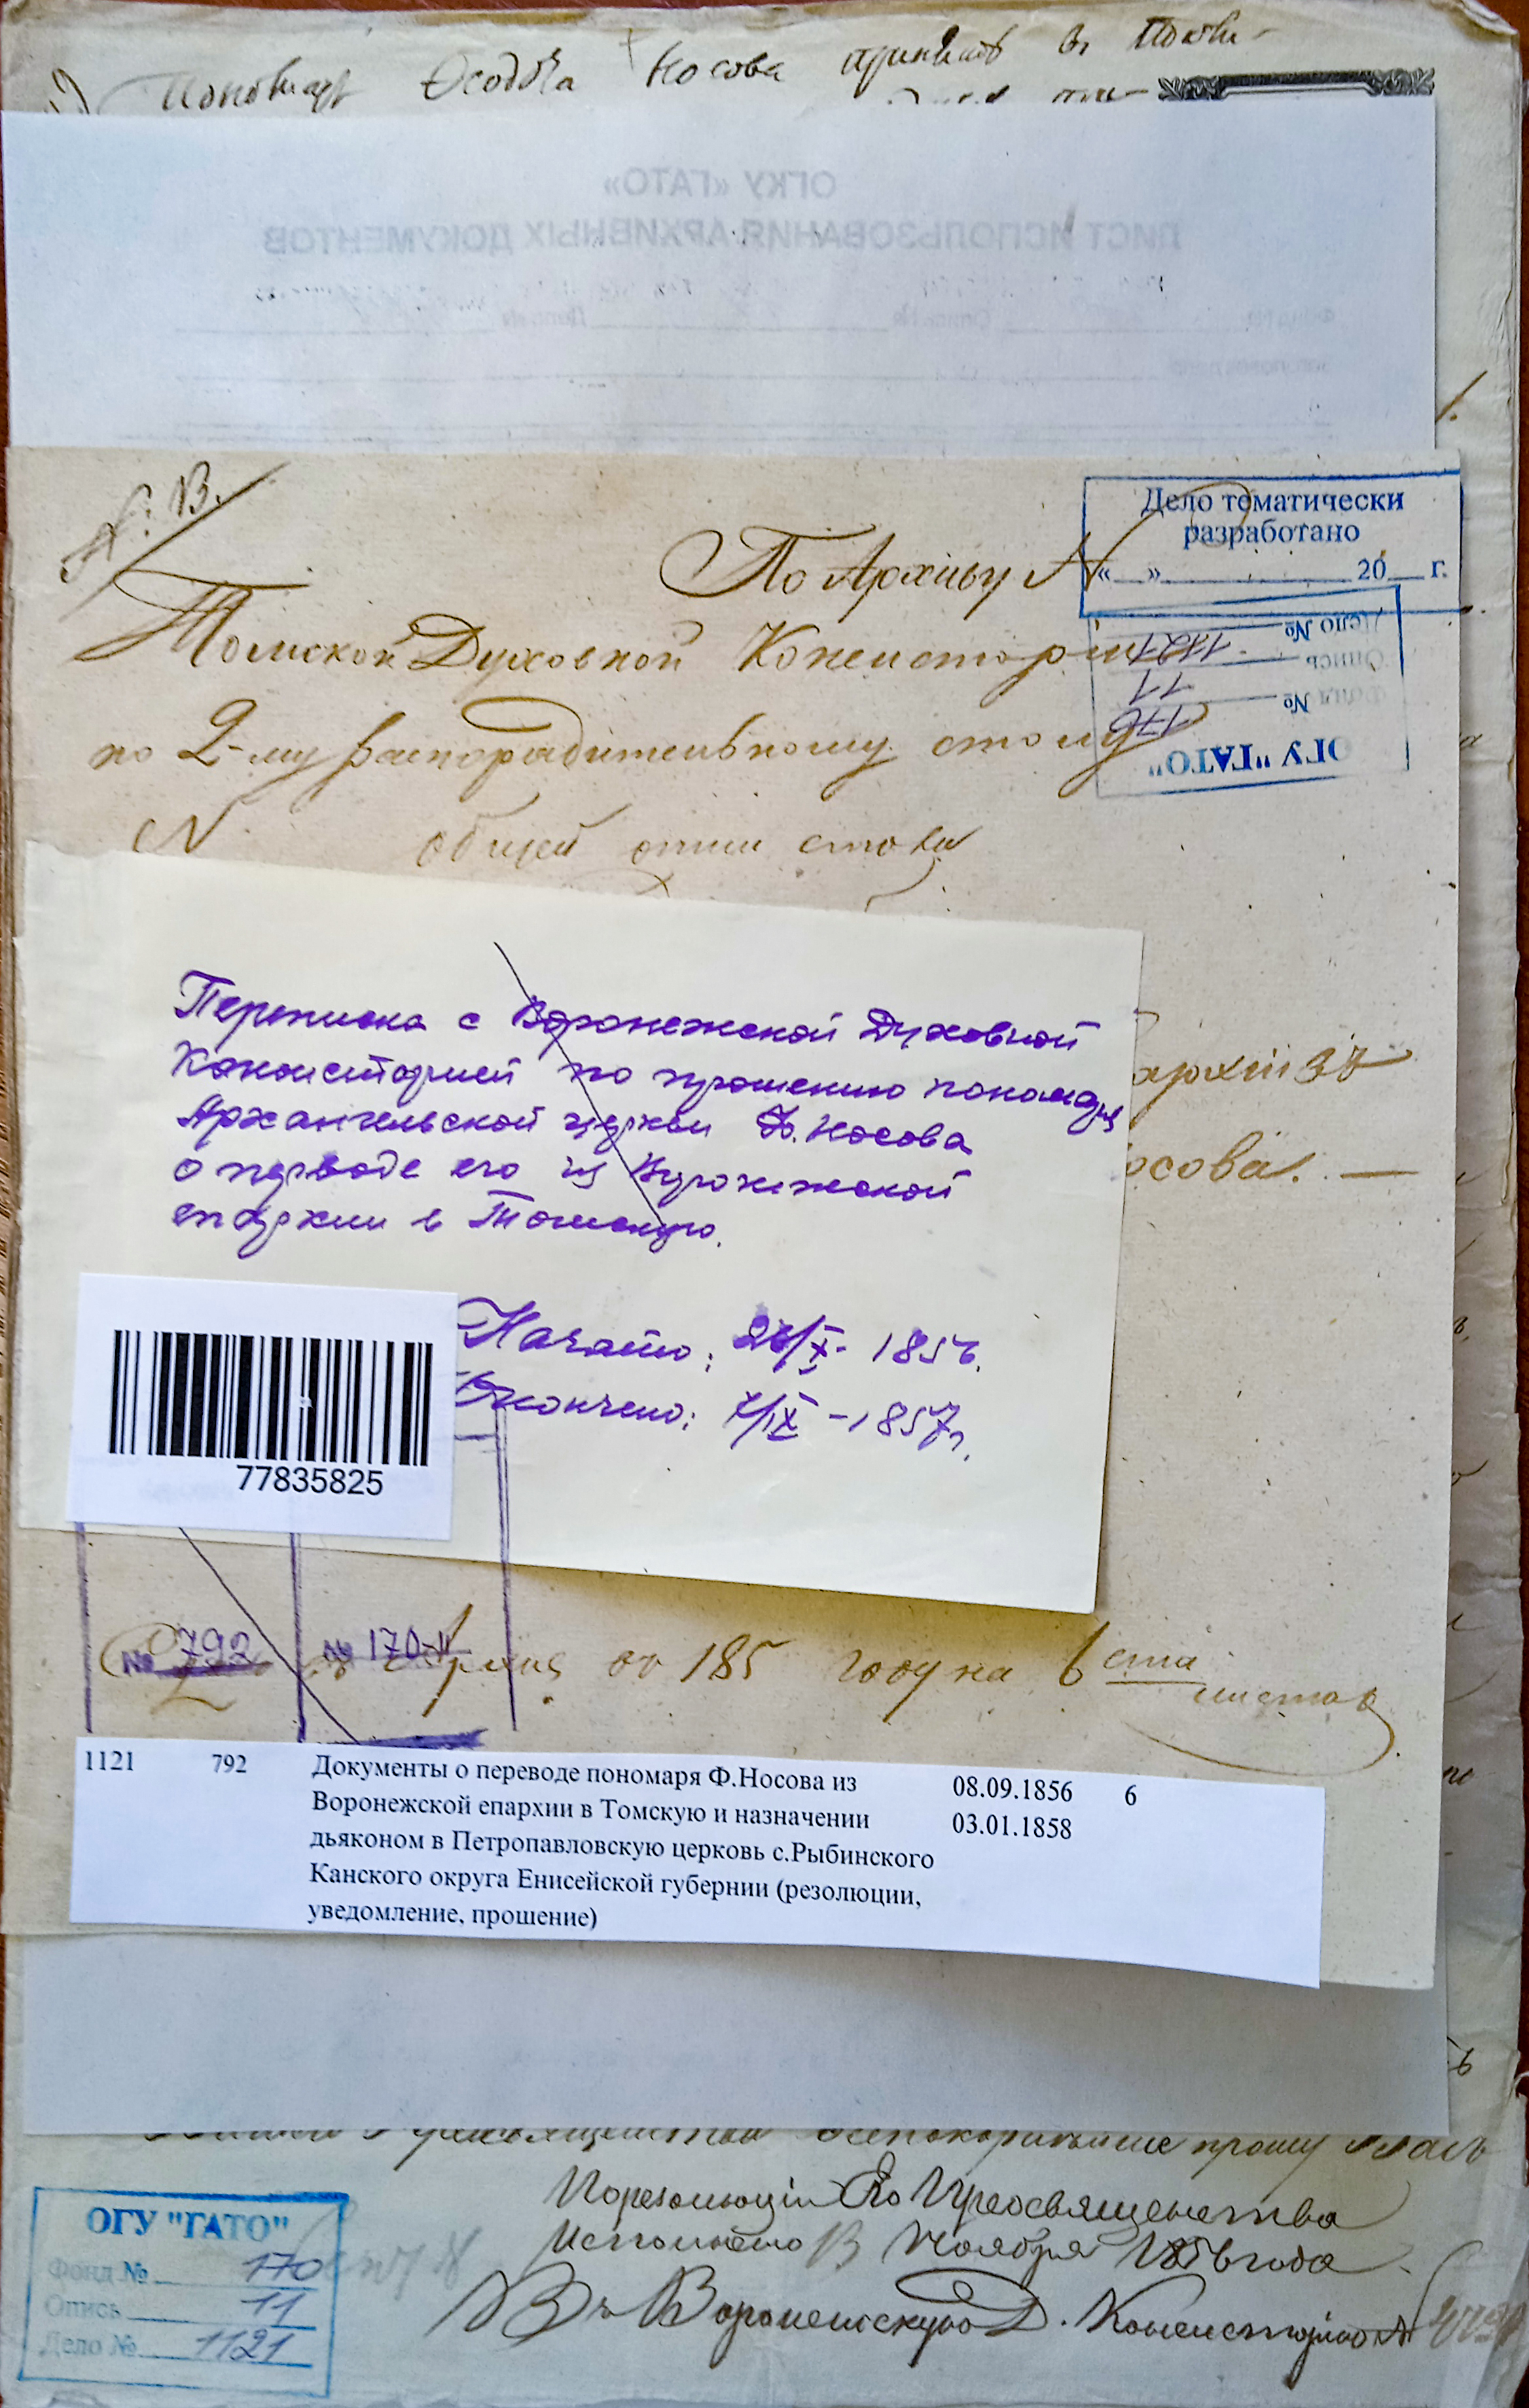 Пономарь Ѳеодоръ Носова принятъ въ
ОГКУ «ГАТО»
ЛИСТ ИСПОЛЬЗОВАНИЯ АРХИВНЫХ ДОКУМЕНТОВ
Дело тематически
разработано
«__»____________20__г.
По Архиву N
Томской Духовной Консисторіи
по 2-му распорядительному столу
N общей описи стола
Дело № 1121
Опись 11
Фонд № 170
ОГУ "ГАТО"
Переписка с Воронежской Духовной
Консисторией по прошению пономаря
Архангельской церкви Ф. Носова
о переводе его из Воронежской
епархии в Томскую.
епархіи зъ
Носова. —
Начато: 26/X - 1856.
Окончено: 7/IX - 1857 г.
77835825
№ 792 № 170-11 185 году на 6 ста
листах
1121 792 Документы о переводе пономаря Ф.Носова из 08.09.1856 6
Воронежской епархии в Томскую и назначении 03.01.1858
дьяконом в Петропавловскую церковь с.Рыбинского
Канского округа Енисейской губернии (резолюции,
уведомление, прошение)
прошу Васъ
По резолюціи Его Преосвященства
Исполнено 13 Ноября 1856 года
Въ Воронежскую Д. Консисторію №
ОГУ "ГАТО"
Фонд № 170
Опись 11
Дело № 1121